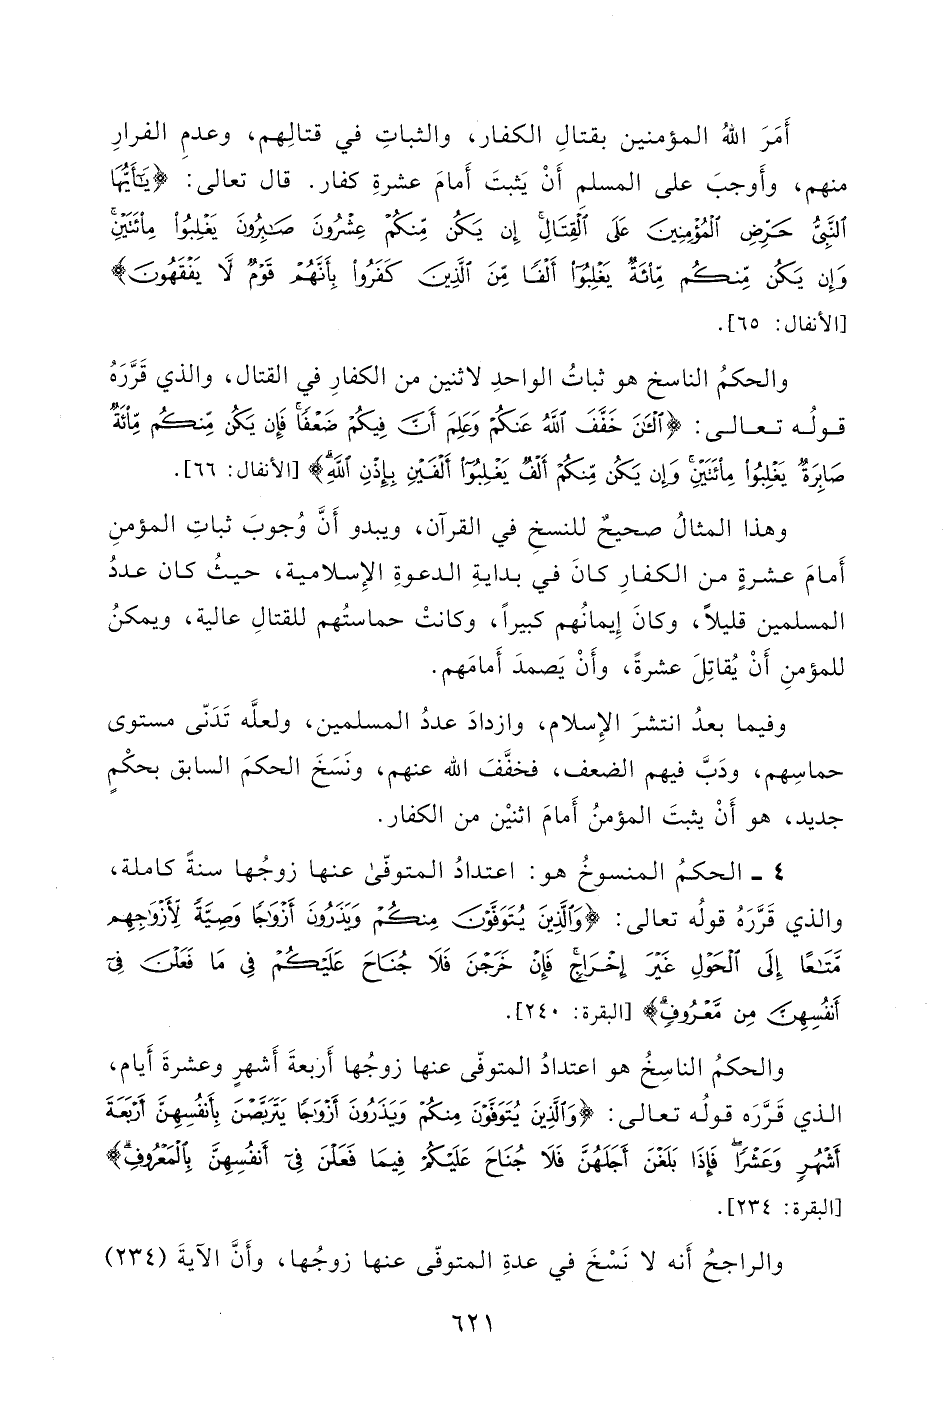 أَمَرَ اللهُ المؤمنين بقتالِ الكفار، والثباتِ في قتالِهم، وعدمِ الفرارِ
منهم، وأوجبَ على المسلمِ أَنْ يَثبتَ أَمامَ عشرةِ كفار. قال تعالى: ﴿يَٰٓأَيُّهَا
ٱلنَّبِىُّ حَرِّضِ ٱلْمُؤْمِنِينَ عَلَى ٱلْقِتَالِ ۚ إِن يَكُن مِّنكُمْ عِشْرُونَ صَٰبِرُونَ يَغْلِبُوا۟ مِا۟ئَتَيْنِ ۚ
وَإِن يَكُن مِّنكُم مِّا۟ئَةٌ يَغْلِبُوٓا۟ أَلْفًا مِّنَ ٱلَّذِينَ كَفَرُوا۟ بِأَنَّهُمْ قَوْمٌ لَّا يَفْقَهُونَ﴾
[الأنفال: ٦٥].
والحكمُ الناسخ هو ثباتُ الواحدِ لاثنين من الكفارِ في القتال، والذي قَرَّرَهُ
قولُه تعالى: ﴿ٱلْـَٰٔنَ خَفَّفَ ٱللَّهُ عَنكُمْ وَعَلِمَ أَنَّ فِيكُمْ ضَعْفًا ۚ فَإِن يَكُن مِّنكُم مِّا۟ئَةٌ
صَابِرَةٌ يَغْلِبُوا۟ مِا۟ئَتَيْنِ ۚ وَإِن يَكُن مِّنكُمْ أَلْفٌ يَغْلِبُوٓا۟ أَلْفَيْنِ بِإِذْنِ ٱللَّهِ ۗ﴾ [الأنفال: ٦٦].
وهذا المثالُ صحيحٌ للنسخِ في القرآن، ويبدو أَنَّ وُجوبَ ثباتِ المؤمنِ
أَمامَ عشرةٍ من الكفارِ كانَ في بدايةِ الدعوةِ الإِسلامية، حيثُ كان عددُ
المسلمين قليلاً، وكانَ إِيمانُهم كبيراً، وكانتْ حماستُهم للقتالِ عالية، ويمكنُ
للمؤمنِ أَنْ يُقاتِلَ عشرةً، وأَنْ يَصمدَ أَمامَهم.
وفيما بعدُ انتشرَ الإِسلام، وازدادَ عددُ المسلمين، ولعلَّه تَدَنّى مستوى
حماسِهم، ودَبَّ فيهم الضعف، فخفَّفَ الله عنهم، ونَسَخَ الحكمَ السابق بحكْمٍ
جديد، هو أَنْ يثبتَ المؤمنُ أَمامَ اثنيْن من الكفار.
٤ ـ الحكمُ المنسوخُ هو: اعتدادُ المتوفّىٰ عنها زوجُها سنةً كاملة،
والذي قَرَّرَهُ قولُه تعالى: ﴿وَٱلَّذِينَ يُتَوَفَّوْنَ مِنكُمْ وَيَذَرُونَ أَزْوَٰجًا وَصِيَّةً لِّأَزْوَٰجِهِم
مَّتَٰعًا إِلَى ٱلْحَوْلِ غَيْرَ إِخْرَاجٍ ۚ فَإِنْ خَرَجْنَ فَلَا جُنَاحَ عَلَيْكُمْ فِى مَا فَعَلْنَ فِىٓ
أَنفُسِهِنَّ مِن مَّعْرُوفٍ ۗ﴾ [البقرة: ٢٤٠].
والحكمُ الناسِخُ هو اعتدادُ المتوفّى عنها زوجُها أَربعةَ أَشهرٍ وعشرةَ أَيام،
الذي قَرَّرَه قولُه تعالى: ﴿وَٱلَّذِينَ يُتَوَفَّوْنَ مِنكُمْ وَيَذَرُونَ أَزْوَٰجًا يَتَرَبَّصْنَ بِأَنفُسِهِنَّ أَرْبَعَةَ
أَشْهُرٍ وَعَشْرًا ۖ فَإِذَا بَلَغْنَ أَجَلَهُنَّ فَلَا جُنَاحَ عَلَيْكُمْ فِيمَا فَعَلْنَ فِىٓ أَنفُسِهِنَّ بِٱلْمَعْرُوفِ ۗ﴾
[البقرة: ٢٣٤].
والراجحُ أَنه لا نَسْخَ في عدةِ المتوفّى عنها زوجُها، وأَنَّ الآيةَ (٢٣٤)
٦٢١